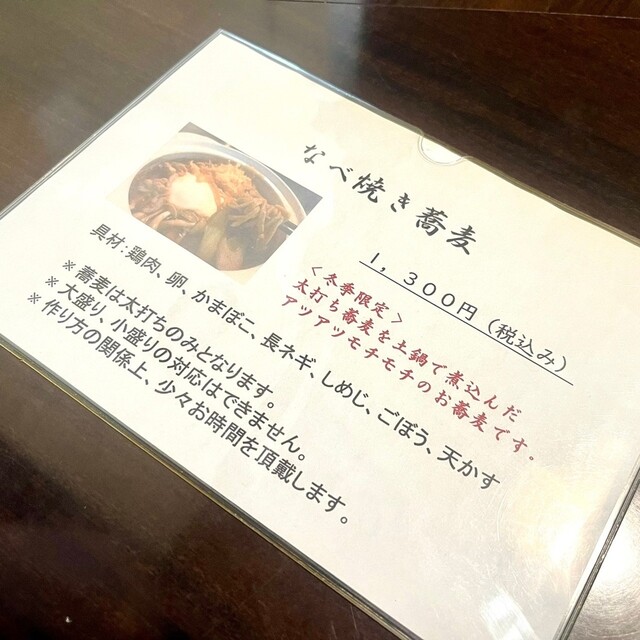 なべ焼き蕎麦
１，３００円（税込み）
＜冬季限定＞
太打ち蕎麦を土鍋で煮込んだ
アツアツモチモチのお蕎麦です。
具材：鶏肉、卵、かまぼこ、長ネギ、しめじ、ごぼう、天かす
※蕎麦は太打ちのみとなります。
※大盛り、小盛りの対応はできません。
※作り方の関係上、少々お時間を頂戴します。